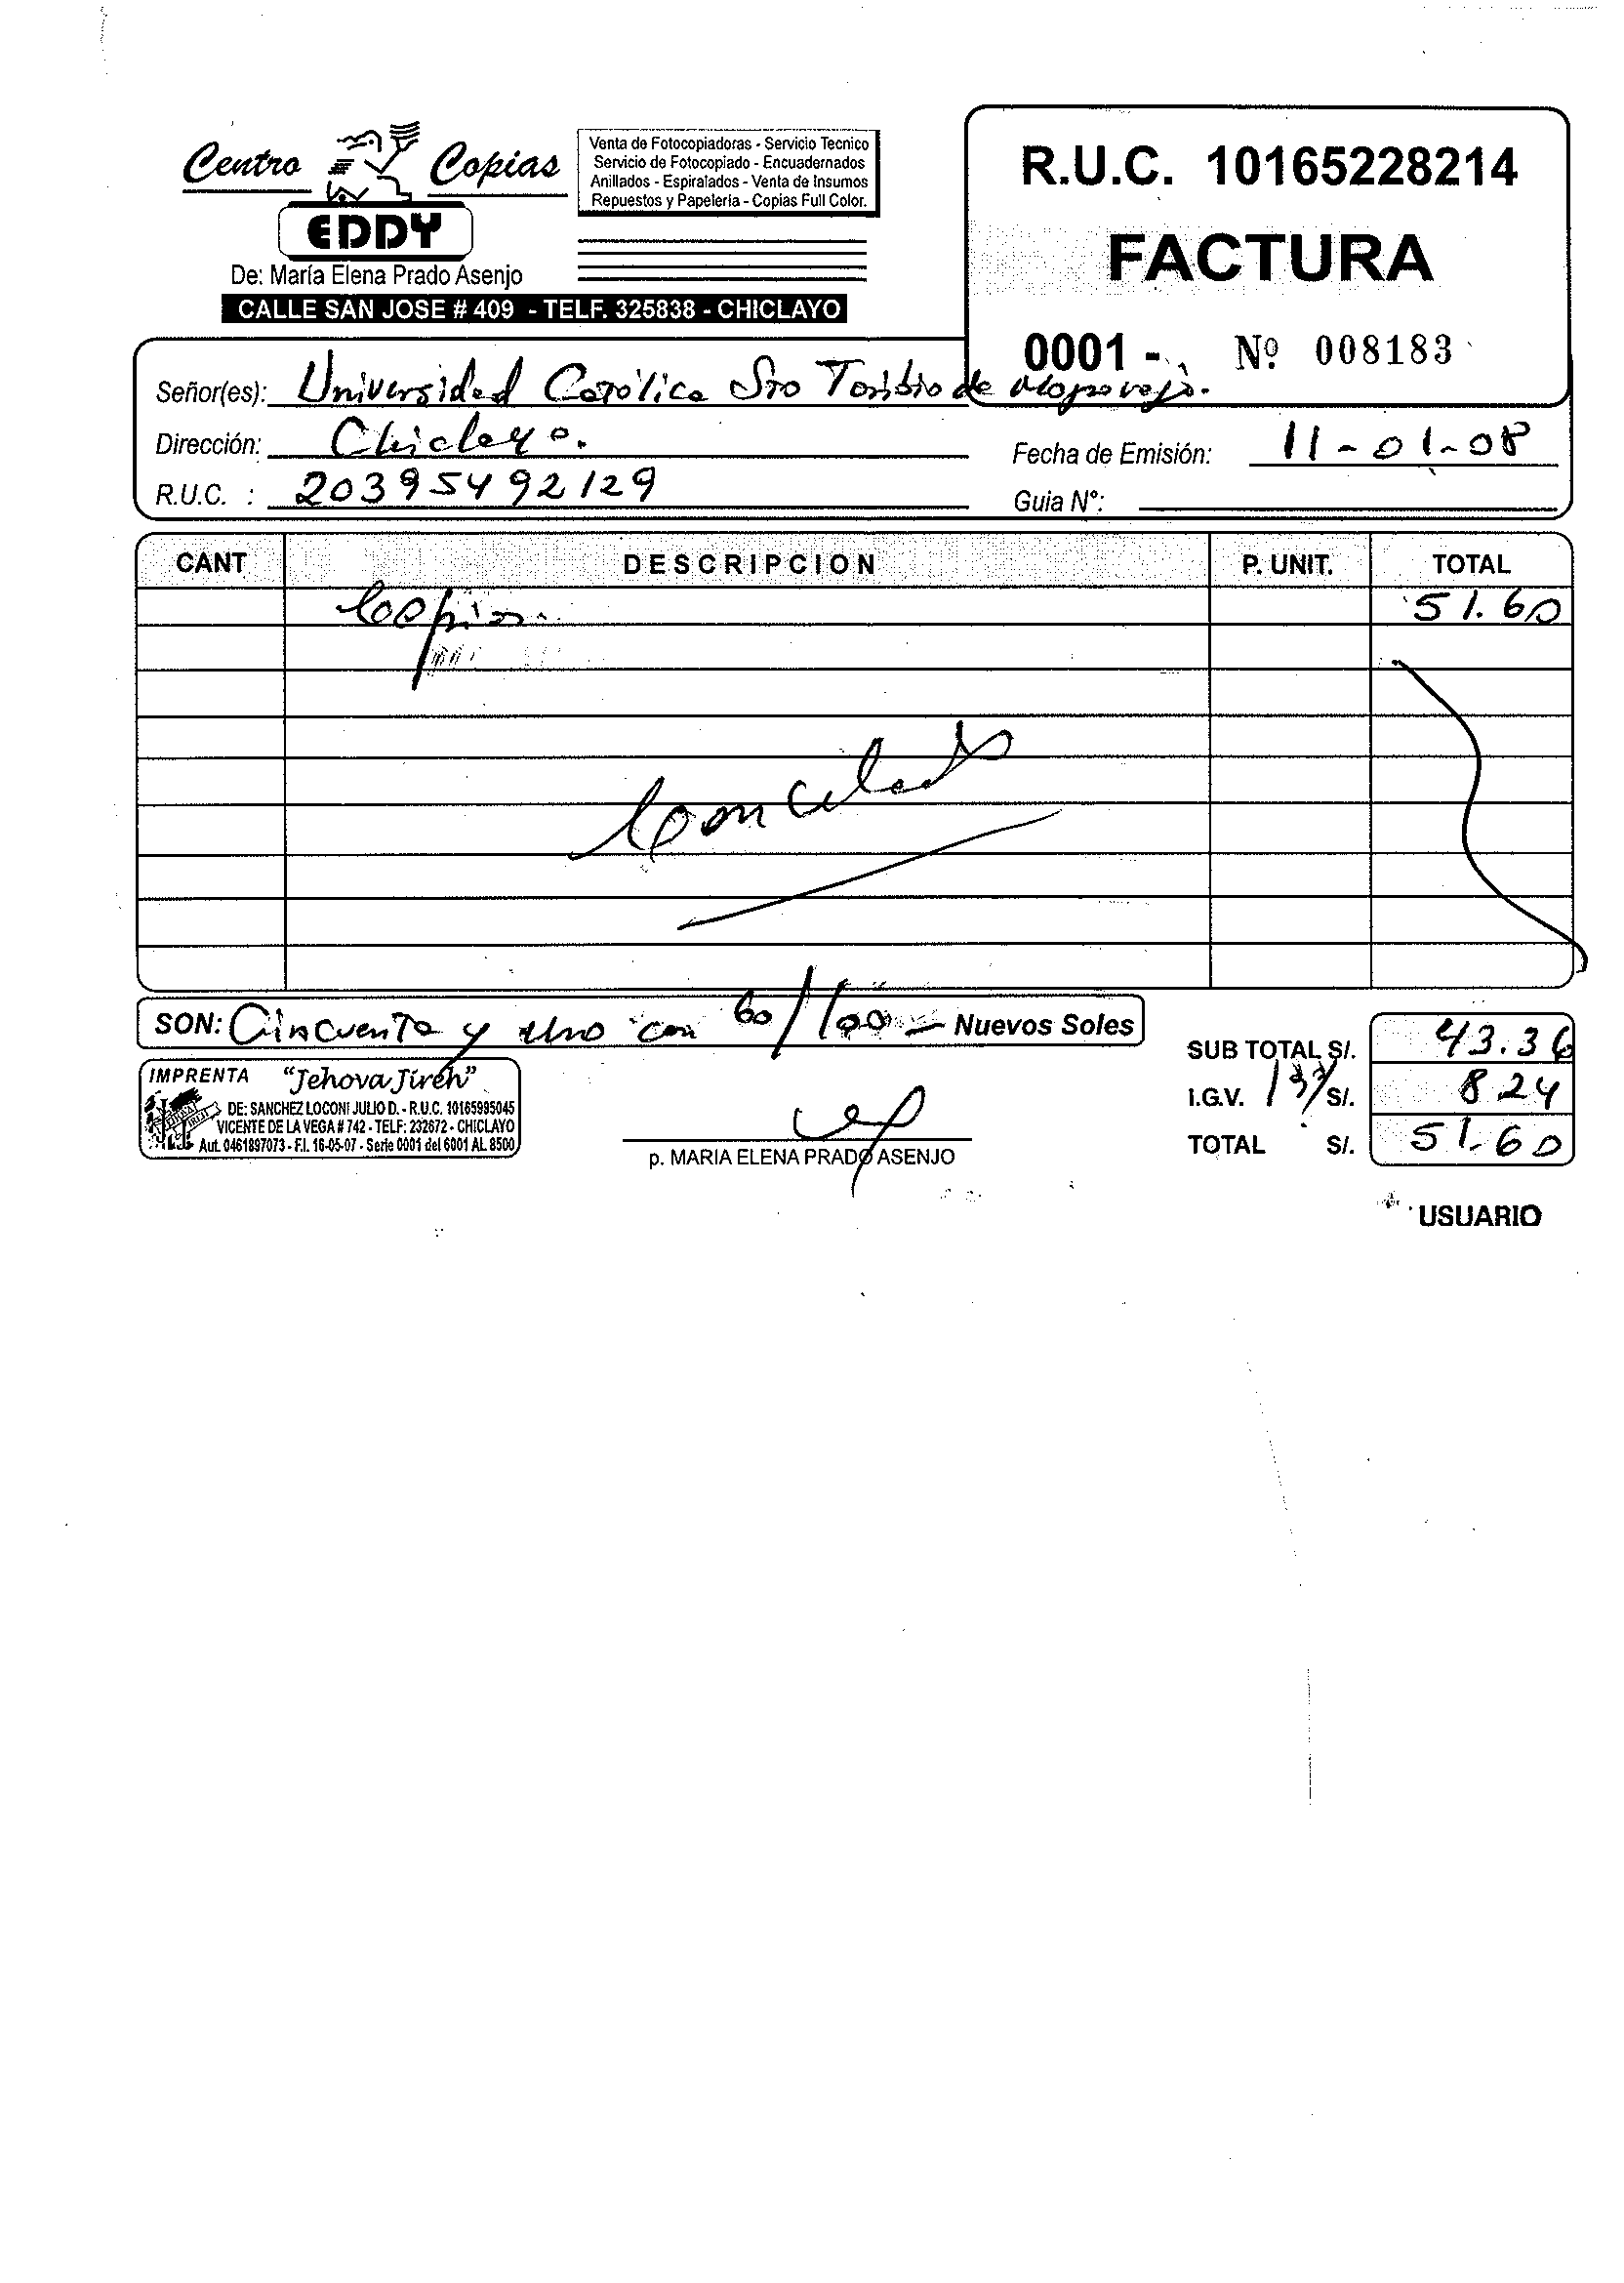 Centro Copias
EDDY
De: María Elena Prado Asenjo
CALLE SAN JOSE # 409 - TELF. 325838 - CHICLAYO
Venta de Fotocopiadoras - Servicio Tecnico
Servicio de Fotocopiado - Encuadernados
Anillados - Espiralados - Venta de Insumos
Repuestos y Papeleria - Copias Full Color.
R.U.C. 10165228214
FACTURA
0001 - Nº 008183
Señor(es): Universidad Católica Sto Toribio de Mogrovejo.
Dirección: Chiclayo.
Fecha de Emisión: 11-01-08
R.U.C. : 20395492129
Guia N°:
CANT DESCRIPCION P. UNIT. TOTAL
Copias 51.60
Cancelado
SON: Cincuenta y uno con 60/100 Nuevos Soles
SUB TOTAL S/. 43.36
I.G.V. S/. 8.24
TOTAL S/. 51.60
IMPRENTA "Jehova Jireh"
DE: SANCHEZ LOCONI JULIO D. - R.U.C. 10165995045
VICENTE DE LA VEGA # 742 - TELF: 232672 - CHICLAYO
Aut. 0461897073 - F.I. 16-05-07 - Serie 0001 del 6001 AL 8500
p. MARIA ELENA PRADO ASENJO
USUARIO